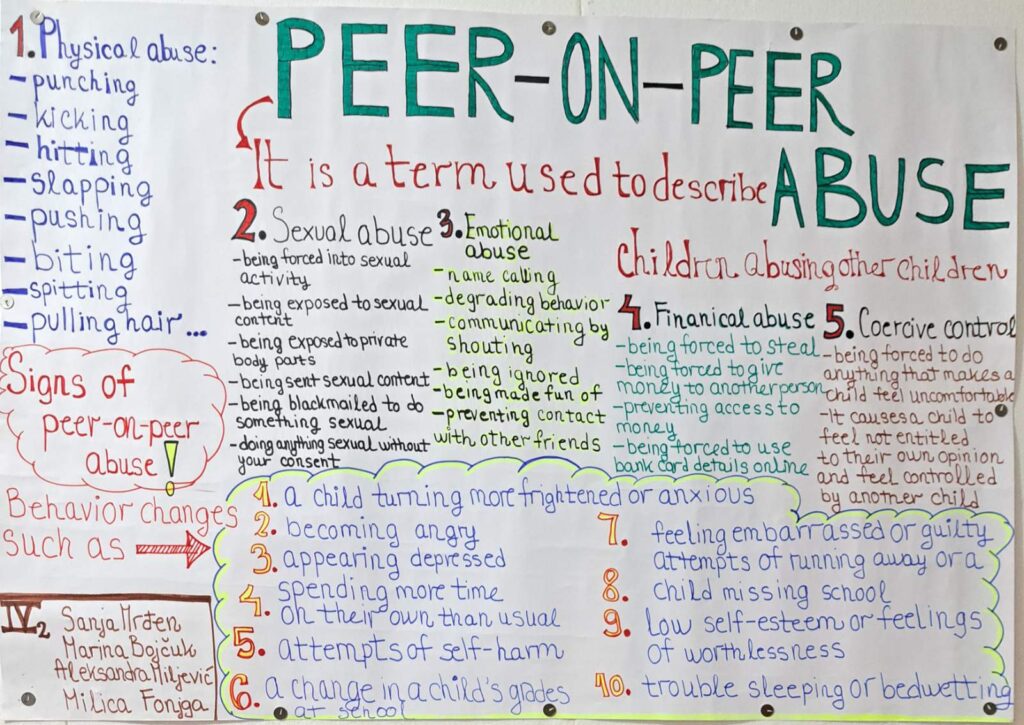 PEER-ON-PEER
ABUSE
It is a term used to describe
children abusing other children
1. Physical abuse:
- punching
- kicking
- hitting
- slapping
- pushing
- biting
- spitting
- pulling hair...
2. Sexual abuse
- being forced into sexual
activity
- being exposed to sexual
content
- being exposed to private
body parts
- being sent sexual content
- being blackmailed to do
something sexual
- doing anything sexual without
your consent
3. Emotional
abuse
- name calling
- degrading behavior
- communicating by
shouting
- being ignored
- being made fun of
- preventing contact
with other friends
4. Finanical abuse
- being forced to steal
- being forced to give
money to another person
- preventing access to
money
- being forced to use
bank card details online
5. Coercive control
- being forced to do
anything that makes a
child feel uncomfortable
- It causes a child to
feel not entitled
to their own opinion
and feel controlled
by another child
Signs of
peer-on-peer
abuse!
Behavior changes
such as
1. a child turning more frightened or anxious
2. becoming angry
3. appearing depressed
4. spending more time
on their own than usual
5. attempts of self-harm
6. a change in a child's grades
at school
7. feeling embarrassed or guilty
8. attempts of running away or a
child missing school
9. low self-esteem or feelings
of worthlessness
10. trouble sleeping or bedwetting
IV2
Sanja Mrđen
Marina Bojčuk
Aleksandra Miljević
Milica Fonjga